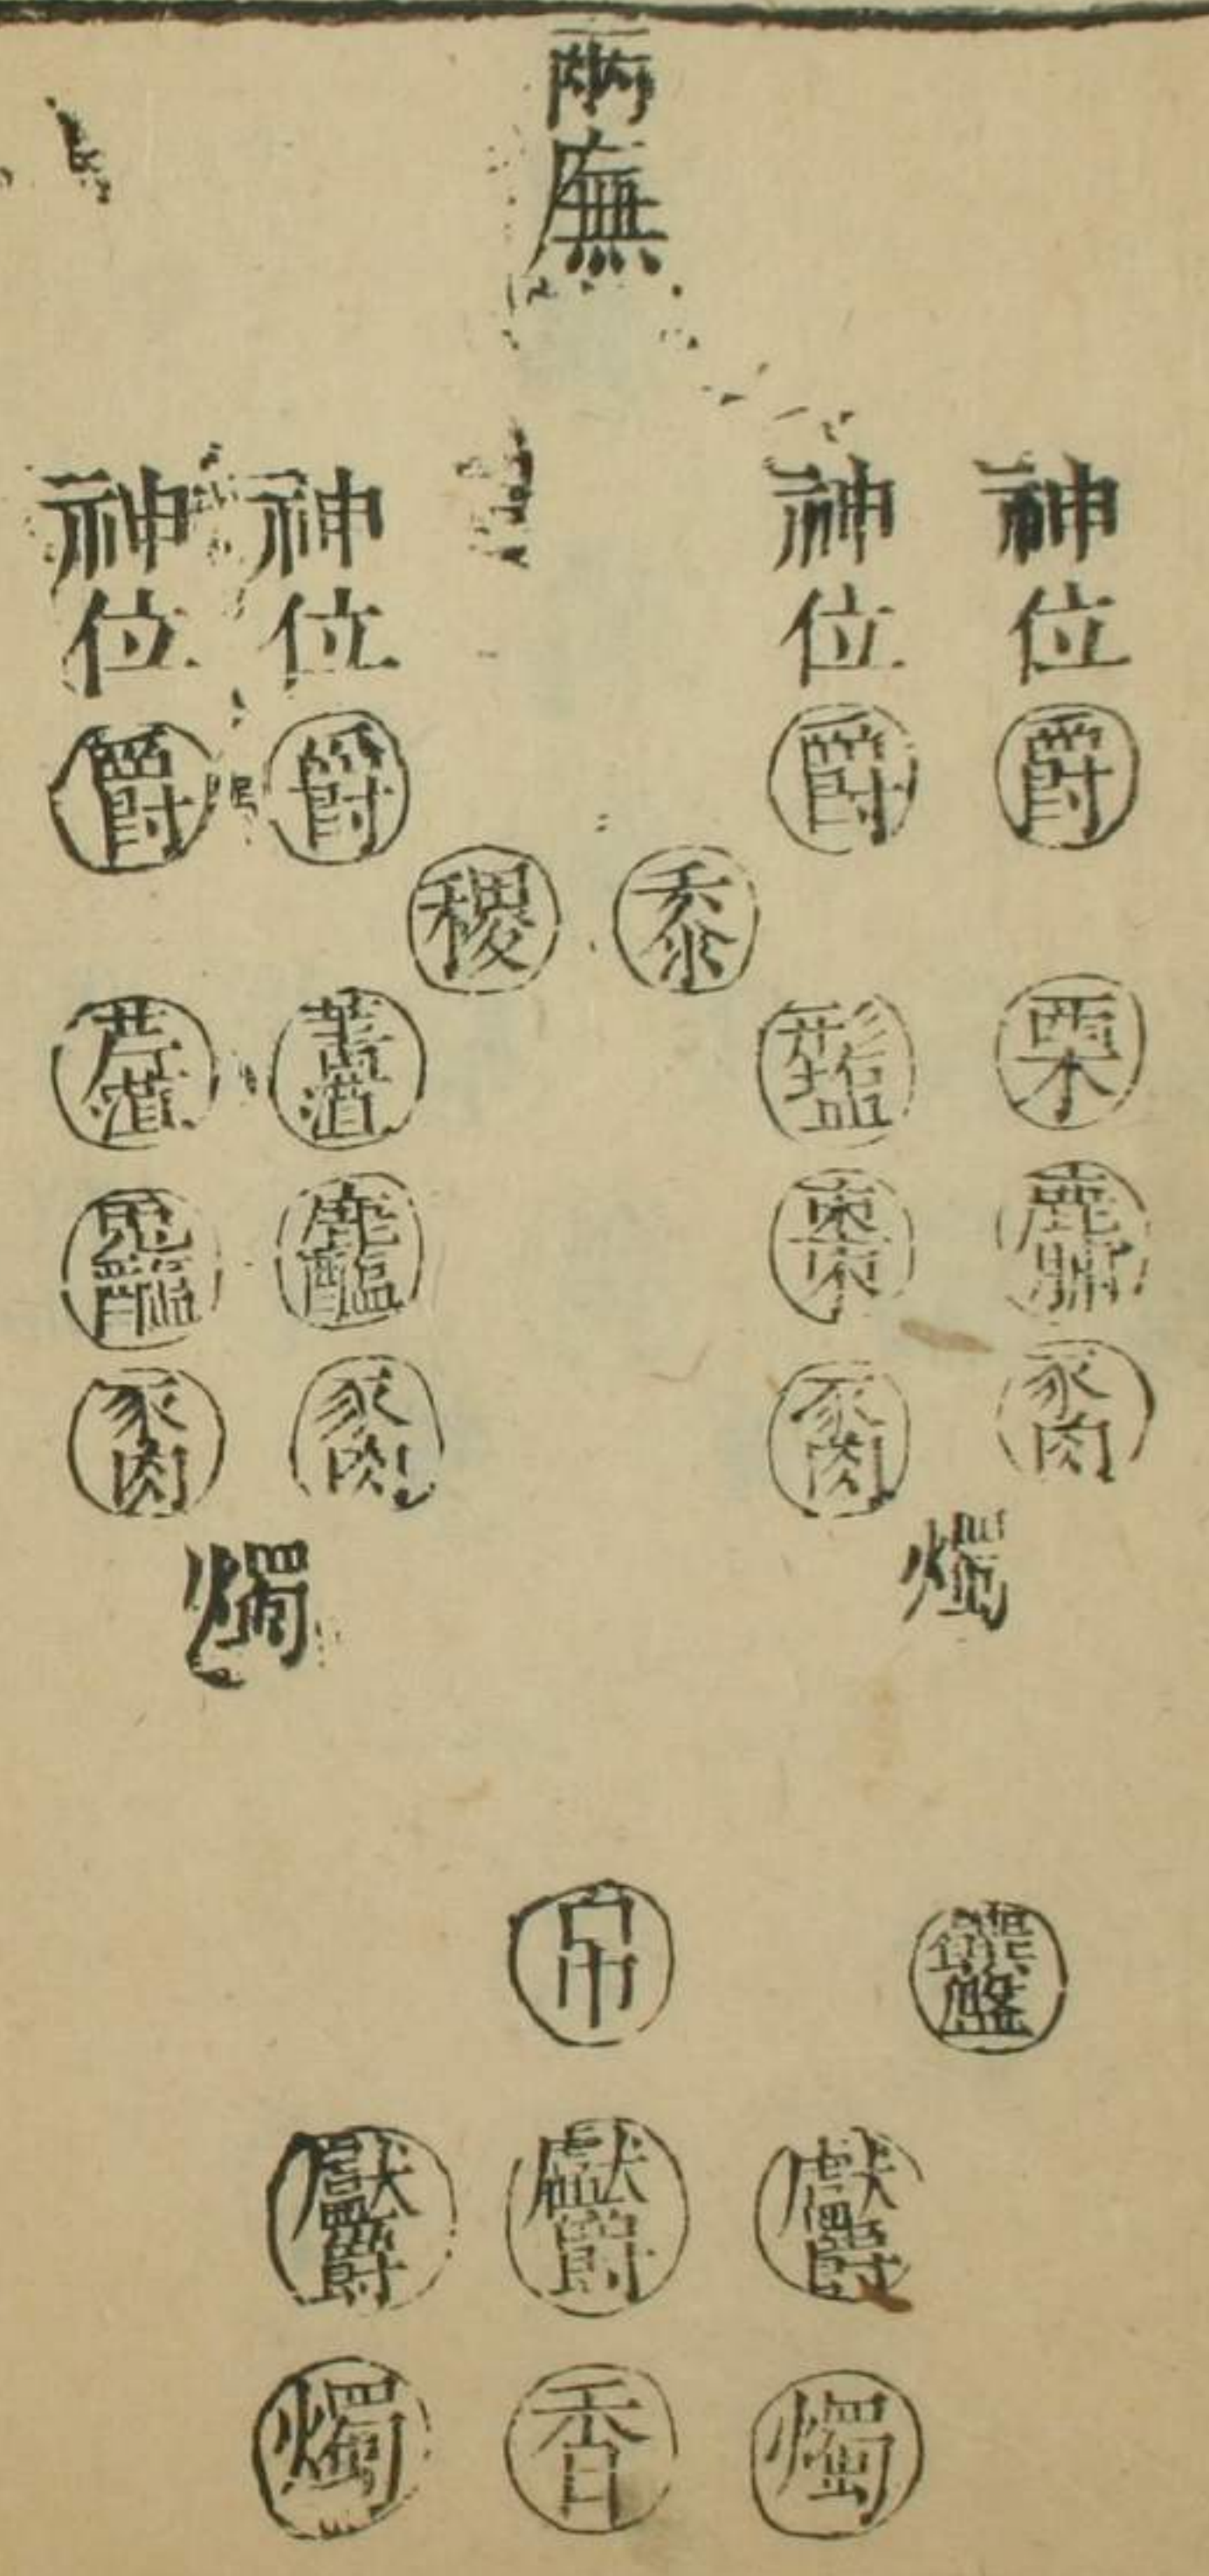 兩廡
神位 神位 神位 神位
爵 爵 爵 爵
稷 黍
芹菹 菁菹 形鹽 栗
兎醢 鹿醢 棗 鹿脯
豕肉 豕肉 豕肉 豕肉
燭 燭
帛
獻爵 獻爵 獻爵
燭 香 燭